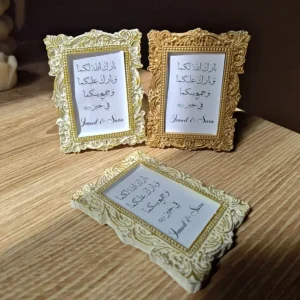 بارك الله لكما
وبارك عليكما
وجمع بينكما
في خير
Jawad & Sara
بارك الله لكما
وبارك عليكما
وجمع بينكما
في خير
Jawad & Sara
بارك الله لكما
وبارك عليكما
وجمع بينكما
في خير
Jawad & Sara